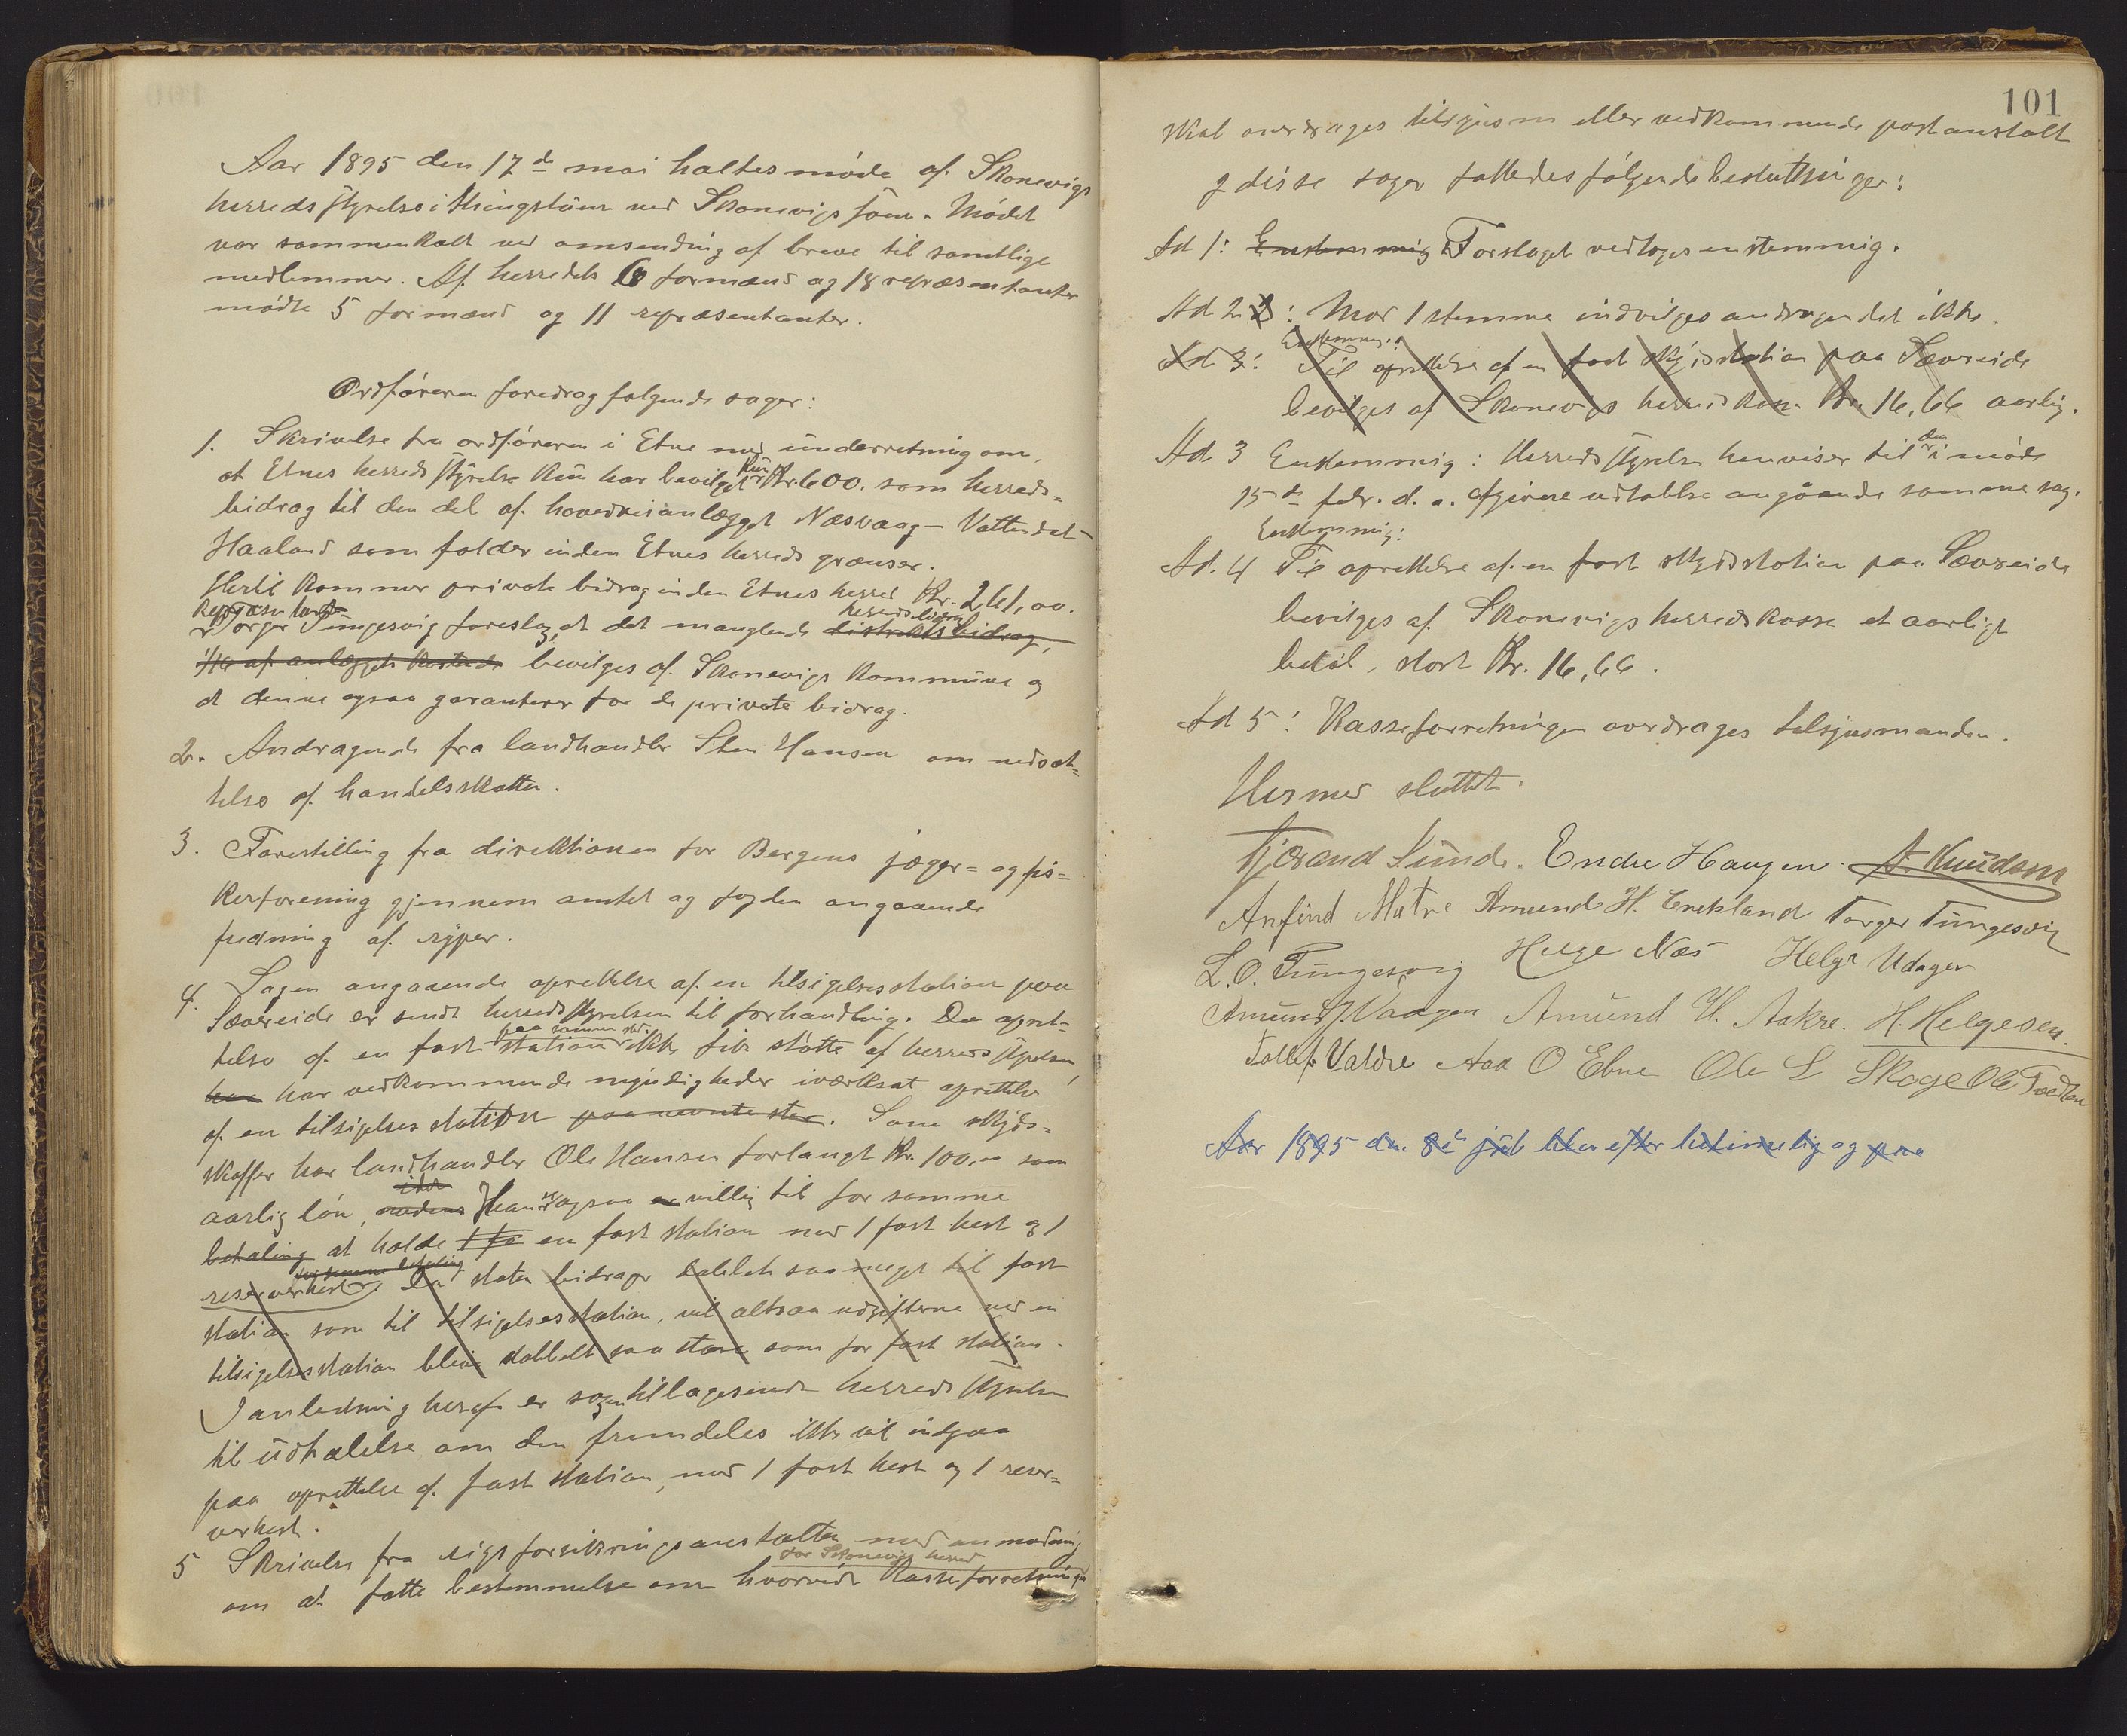 Aar 1895 den 17de mai holtes møde af Skonevigs
herredsstyrelse i thingstuen ved Skonevigs søen. Mødet
var sammenkaldt ved omsending af breve til samtlige
medlemmer. Af herredets 6 formænd og 18 repræsentanter
mødte 5 formænd og 11 repræsentanter.
Ordføreren foredrog følgende sager:
1. Skrivelse fra ordføreren i Etne med underretning om,
at Etnes herredsstyrelse kun har bevilget kun Kr. 600. som herreds=
bidrag til den del af hovedveianlægget Næsvaag - Vattendal -
Haaland som falder inden Etnes herreds grænser.
Hertil kommer private bidrag inden Etnes herred Kr. 261,00.
Repræsentant herredsbidrag
Torger Tungesvig foreslog, at det manglende distriktsbidrag,
1/10 af anlæggets kostende bevilges af Skonevigs kommune og
at denne ogsaa garanterer for de private bidrag.
2. Andragende fra landhandler Sten Hansen om nedsæt=
telse af handelsskatten.
3. Forestilling fra direktionen for Bergens jæger= og fis=
kerforening gjennem amtet og fogden angaaende
fredning af ryper.
4. Sagen angaaende oprettelse af en tilsigelsesstation paa
Sævereide er sendt herredsstyrelsen til forhandling. Da opret=
paa samme sted
telse af en fast station ikke fik støtte af herredsstyrelsen,
har har vedkommende myndigheder iværksat oprettelse
af en tilsigelses station paa nevnte sted. Som skyds=
skaffer har landhandler Ole Hansen forlangt Kr. 100,00 som
aarlig løn, Han er ogsaa er villig til for samme
betaling at holde en fast station med 1 fast hest og 1
for samme betaling
reserverhest. Da staten bidrager dobbelt saa meget til fast
station som til tilsigelsesstation, vil altsaa udgifterne ved en
tilsigelsesstation blive dobbelt saa store som for fast station.
I anledning heraf er sagen tilbagesendt herredsstyrelsen
til udtalelse om den fremdeles ikke vil indgaa
paa oprettelse af fast station, med 1 fast hest og 1 reser=
verhest.
5 Skrivelse fra rigsforsikringsanstalten med anmodning
for Skonevigs herred
om at fatte bestemmelse om hvorvidt kasseforretningen
101
skal overdrages tilsynsm eller vedkommende postanstalt
I disse sager fattedes følgende beslutninger:
Ad 1: Enstemmig Forslaget vedtoges enstemmig.
Ad 2: Mod 1 stemme indvilges andragendet ikke.
Enstemmig:
Ad 3: Til oprettelse af en fast skydsstation paa Sævereide
bevilges af Skonevigs herredskasse Kr. 16,66 aarlig.
Ad 3 Enstemmig: Herredsstyrelsen henviser til den i møde
15de febr. d. a. afgivne udtalelse angaaende samme sag.
Enstemmig:
Ad. 4 Til oprettelse af en fast skydsstation paa Sævereide
bevilges af Skonevigs herredskasse et aarligt
beløb, stort Kr. 16,66.
Ad 5: Kasseforretningen overdrages tilsynsmanden.
Hermed sluttet.
Tjerand Sunde. Endre Haugen. A. Knudsen
Anfind Matre Amund H. Enebsland Torger Tungesvig
L. O. Tungesvig Helge Næs Helge Udager
Amund J. Vaagen Amund H. Aakre. H. Helgesen.
Tollef Valdre Aad O Ebne Ole L Skoge Ole Tvedten
Aar 1895 den 8de juli blev efter lukkenelig og paa